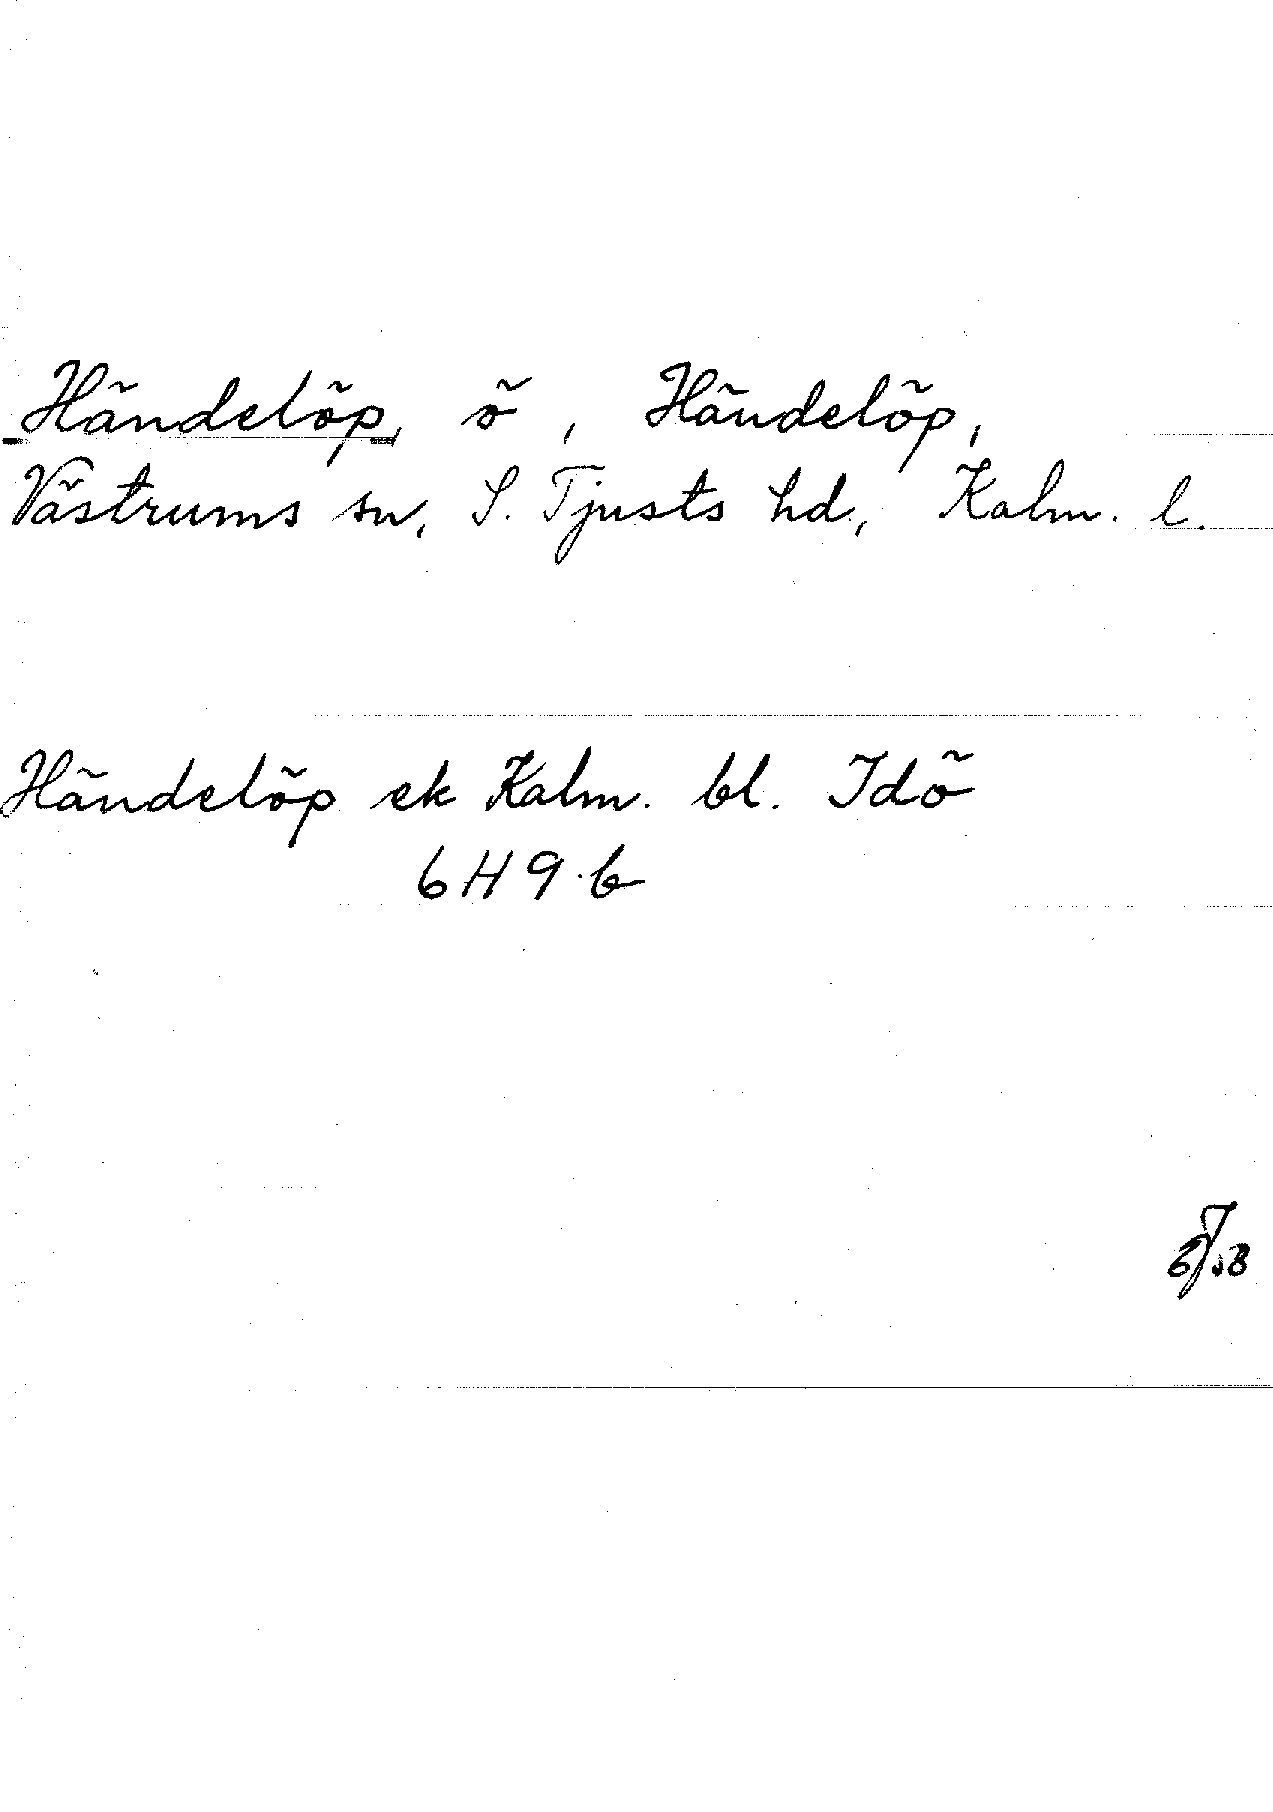 Händelöp, ö, Händelöp,
Västrums sn, S. Tjusts hd, Kalm. l.
Händelöp ek Kalm. bl. Idö
6H9.b